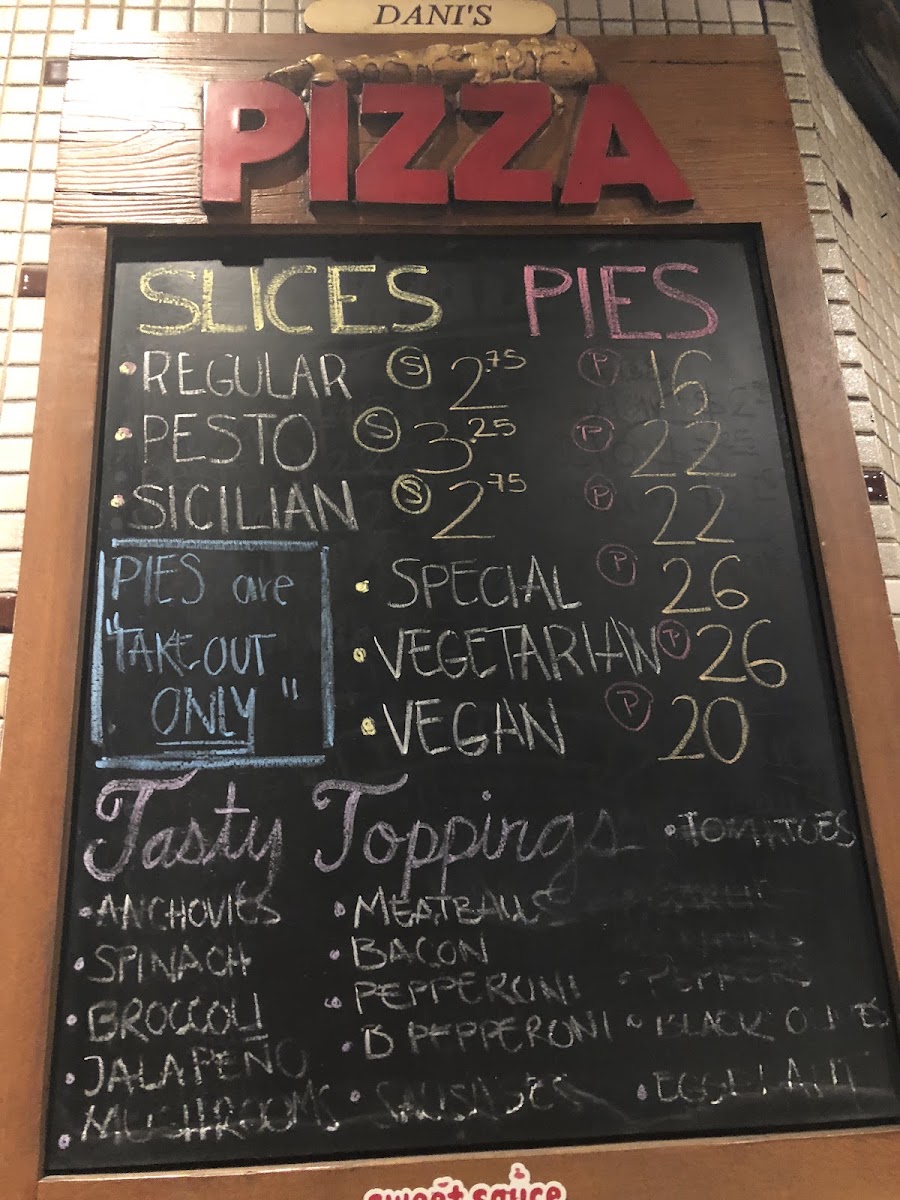 DANI'S
PIZZA
SLICES PIES
• REGULAR S 2.75 P 16
• PESTO S 3.25 P 22
• SICILIAN S 2.75 P 22
PIES are
"TAKEOUT
ONLY"
• SPECIAL P 26
• VEGETARIAN P 26
• VEGAN P 20
Tasty Toppings
• ANCHOVIES
• SPINACH
• BROCCOLI
• JALAPENO
• MUSHROOMS
• MEATBALLS
• BACON
• PEPPERONI
• B PEPPERONI
• SAUSAGES
• TOMATOES
• PEPPERS
• BLACK OLIVES
• EGGPLANT
sweet sauce